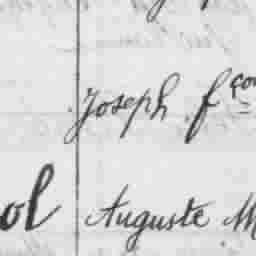 Joseph f^çois
ol Auguste M